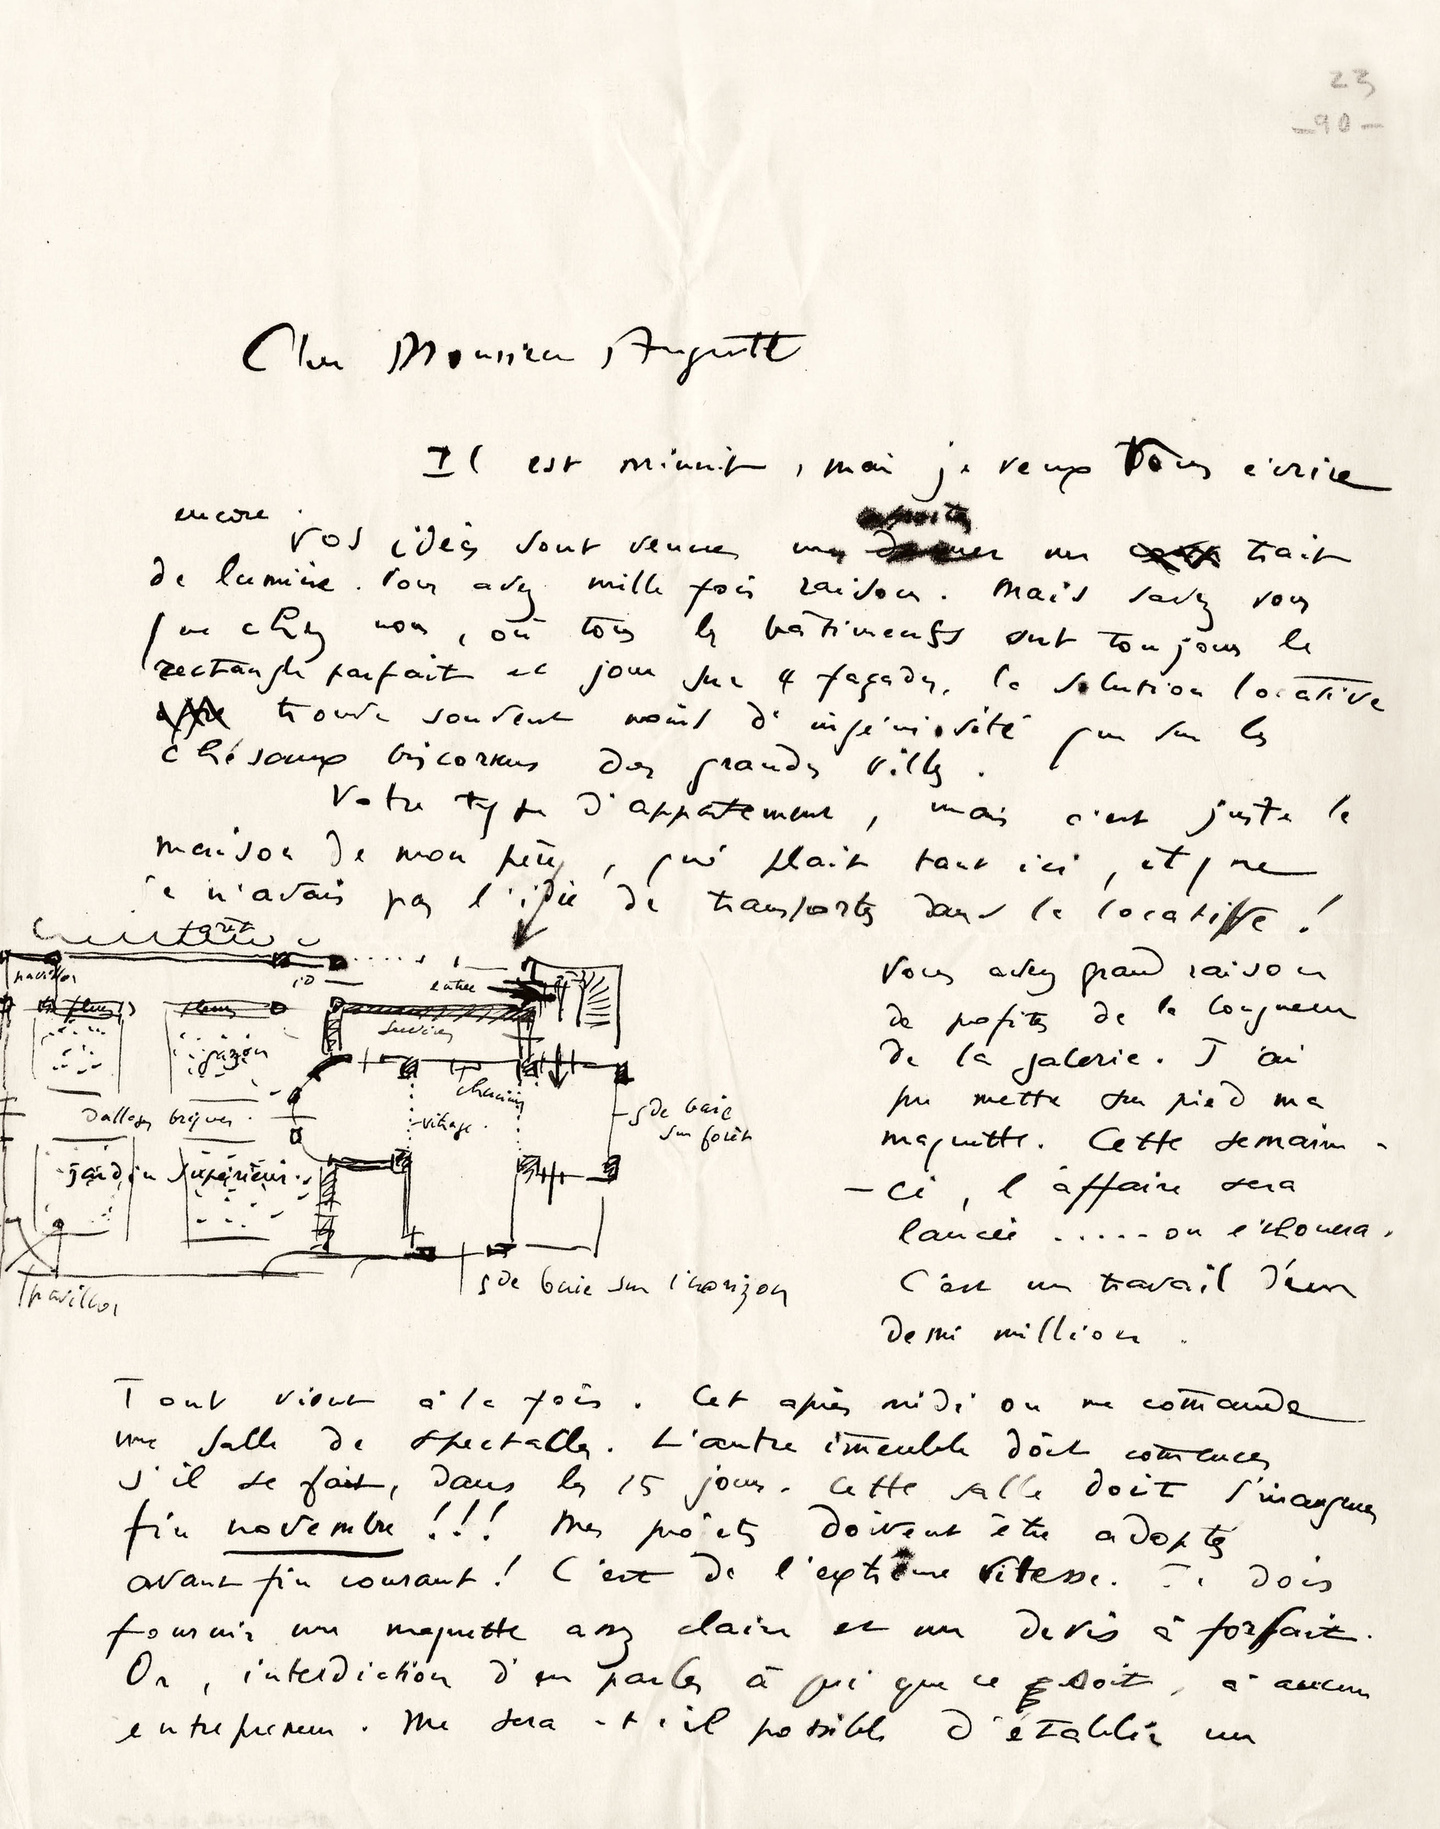 23
– 90 –
Cher Monsieur Auguste
Il est minuit, mai je veux Vous écrire
encore. Vos idées sont venues me un trait
de lumière. Vous avez mille fois raison. Mais savez vous
que chez nous, où tous les bâtiments sont toujours le
rectangle parfait et jour sur 4 façades, la solution locative
trouve souvent moins d'ingéniosité que sur les
chésaux biscornus des grandes villes.
Votre type d'appartement, mais c'est juste la
maison de mon père, qui plait tant ici, et que
je n'avais pas l'idée de transporter dans le locatif !
forêt
pavillon
entrée
fleurs
fleurs
services
gazon
cheminée
Dalles briques
vitrage
gde baie
sur forêt
jardin supérieur
pavillon
gde baie sur l'horizon
Vous avez grand raison
de profiter de la longueur
de la galerie. J'ai
pu mettre sur pied ma
maquette. Cette semaine-
-ci, l'affaire sera
lancée ..... ou échouera.
C'est un travail d'un
demi million.
Tout vient à la fois. Cet après midi on me com̄ande
une salle de spectacles. L'autre im̄euble doit com̄encer
s'il se fait, dans les 15 jours. Cette salle doit s'inaugurer
fin novembre !!! Mes projets doivent être adoptés
avant fin courant ! C'est de l'extrême vitesse. Je dois
fournir une maquette assez claire et un devis à forfait.
Or, interdiction d'en parler à qui que ce soit, à aucun
entrepreneur. Me sera-t-il possible d'établir un